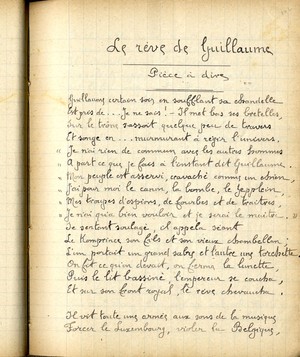 Le rêve de Guillaume
Pièce à dire
Guillaume, certain soir en soufflant sa chandelle
Est près de ... Je ne sais! - Il met bas ses bretelles,
Sur le trône s'assoit quelque peu de travers
Et songe en ... murmurant à régir l'univers.
" Je n'ai rien de commun avec les autres hommes
" A part ce que je fais à l'instant dit Guillaume.
" Mon peuple est asservi, cravaché comme un chien,
" J'ai pour moi le canon, la bombe, le Zeppelin,
" Mes troupes d'espions, de fourbes et de traîtres,
" Je n'ai qu'à bien vouloir et je serai le maître. "
Se sentant soulagé, il appela séant
Le Kronprinz son fils et son vieux chambellan
L'un portait un grand sabre et l'autre une
On fit ce qu'on devait, on ferma la lunette
Puis le lit bassiné l'empereur se coucha,
Et sur son front royal, le rêve chevaucha.
Il voit toute une armée aux sons de la musique
Forcer le Luxembourg, violer la Belgique,